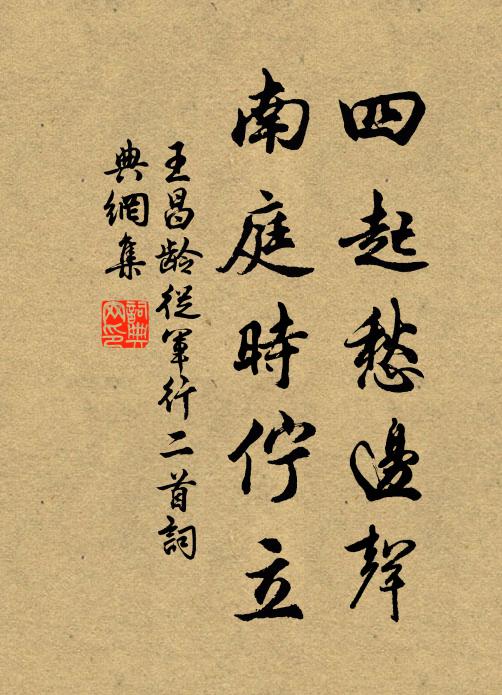 四起愁邊聲
南庭時佇立
王昌齡從軍行二首詞
典網集
詞典
网印